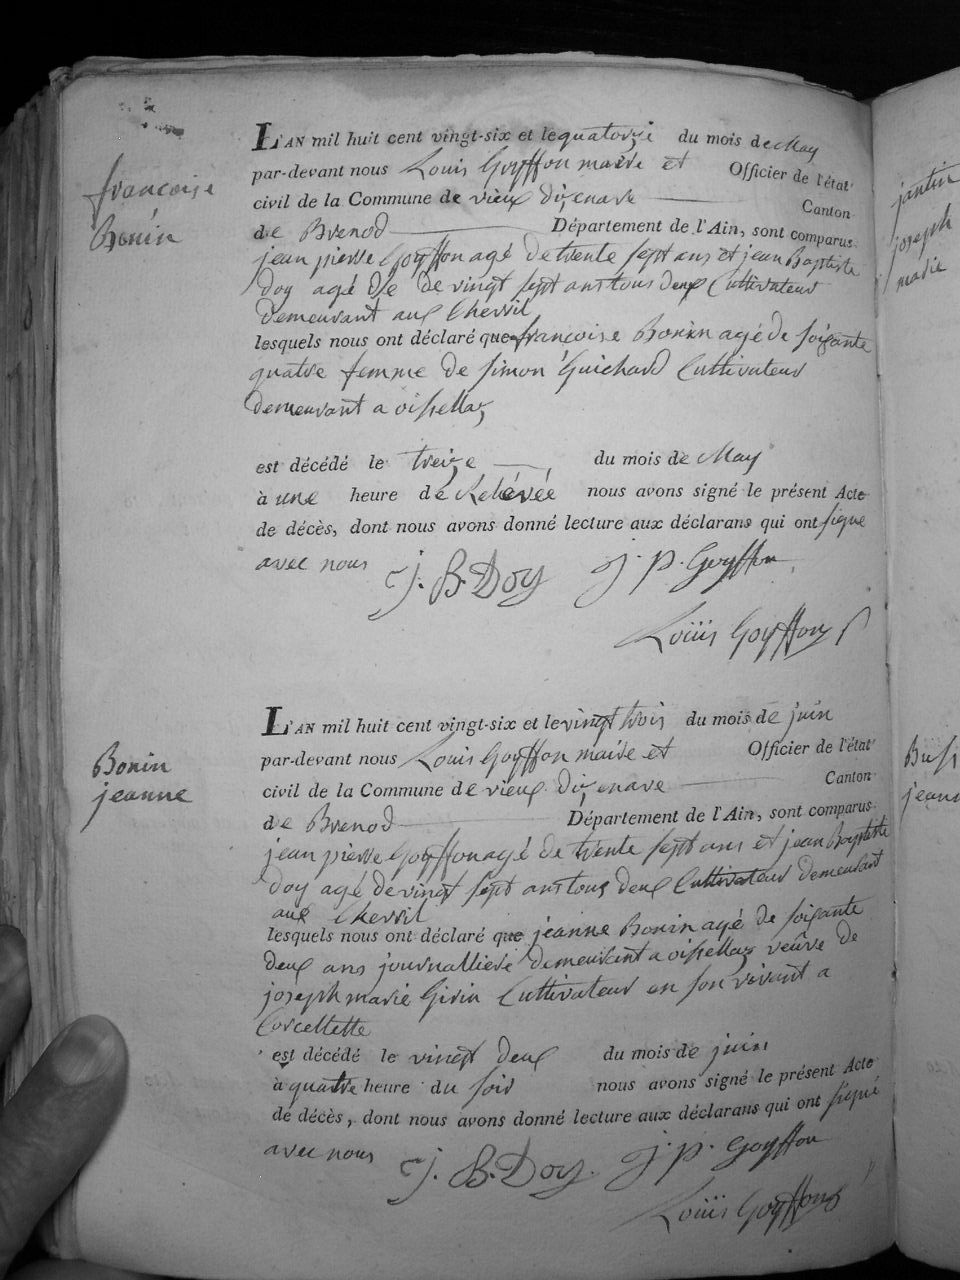 françoise
Bonin
L'AN mil huit cent vingt-six et le quatorze du mois de May
par-devant nous Louis Goyffon maire et Officier de l'état
civil de la Commune de vieux dizenave Canton
de Brenod Département de l'Ain, sont comparus
jean pierre Goyffon agé de trente sept ans et jean Baptiste
Doy agé de de vingt sept ans tous deux Cultivateur
demeurant aux Chevril
lesquels nous ont déclaré que françoise Bonin agé de soixante
quatre femme de simon Guichard Cultivateur
demeurant a oissellaz
est décédé le treize du mois de May
à une heure de Relevée nous avons signé le présent Acte
de décès, dont nous avons donné lecture aux déclarans qui ont signe
avec nous J. B. Doy j. p. Goyffon
Louis Goyffon
Bonin
jeanne
L'AN mil huit cent vingt-six et le vingt trois du mois de juin
par-devant nous Louis Goyffon maire et Officier de l'état
civil de la Commune de vieux dizenave Canton
de Brenod Département de l'Ain, sont comparus
jean pierre Goyffon agé de trente sept ans et jean Baptiste
doy agé de vingt sept ans tous deux Cultivateur demeurant
aux Chevril
lesquels nous ont déclaré que jeanne Bonin agé de soixante
deux ans journalliere demeurant a oissellaz veuve de
joseph marie Girin Cultivateur en son vivant a
Corcellette
est décédé le vingt deux du mois de juin
à quatre heure du soir nous avons signé le présent Acte
de décès, dont nous avons donné lecture aux déclarans qui ont signé
avec nous J. B. Doy. j. p. Goyffon
Louis Goyffon
jantin
joseph
marie